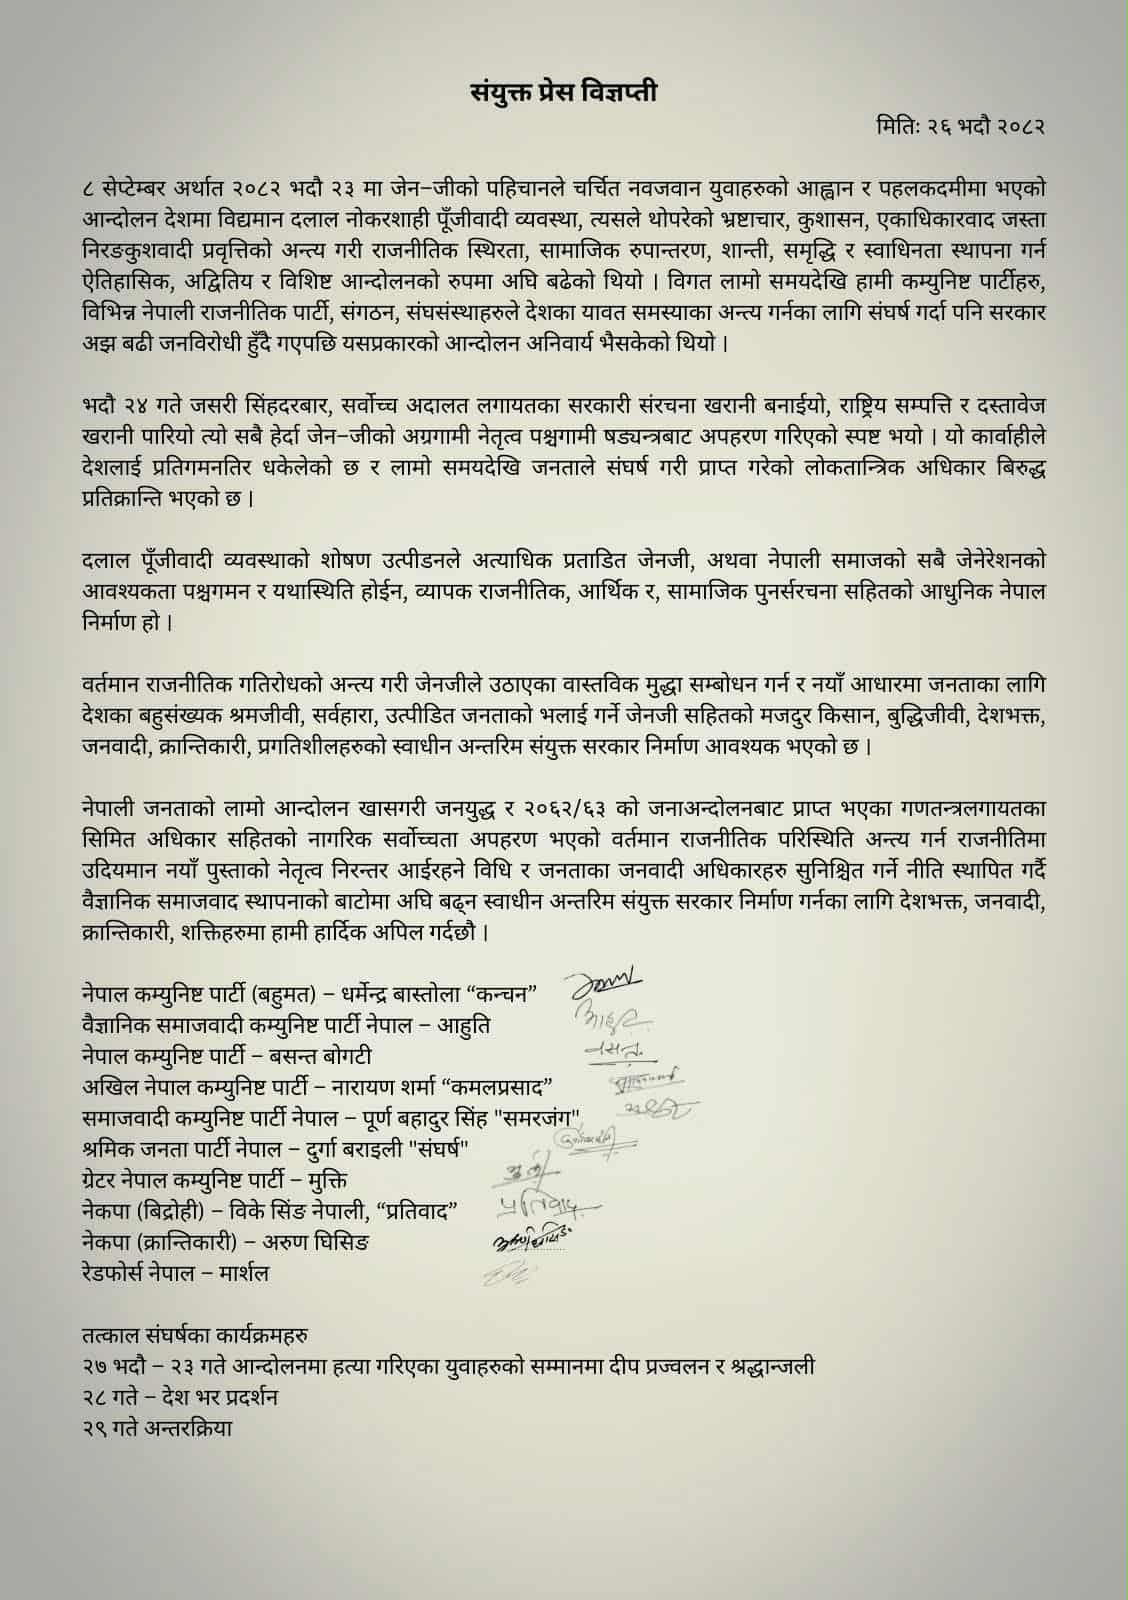 संयुक्त प्रेस विज्ञप्ती
मितिः २६ भदौ २०८२
८ सेप्टेम्बर अर्थात २०८२ भदौ २३ मा जेन–जीको पहिचानले चर्चित नवजवान युवाहरुको आह्वान र पहलकदमीमा भएको
आन्दोलन देशमा विद्यमान दलाल नोकरशाही पूँजीवादी व्यवस्था, त्यसले थोपरेको भ्रष्टाचार, कुशासन, एकाधिकारवाद जस्ता
निरङकुशवादी प्रवृत्तिको अन्त्य गरी राजनीतिक स्थिरता, सामाजिक रुपान्तरण, शान्ती, समृद्धि र स्वाधिनता स्थापना गर्न
ऐतिहासिक, अद्वितिय र विशिष्ट आन्दोलनको रुपमा अघि बढेको थियो । विगत लामो समयदेखि हामी कम्युनिष्ट पार्टीहरु,
विभिन्न नेपाली राजनीतिक पार्टी, संगठन, संघसंस्थाहरुले देशका यावत समस्याका अन्त्य गर्नका लागि संघर्ष गर्दा पनि सरकार
अझ बढी जनविरोधी हुँदै गएपछि यसप्रकारको आन्दोलन अनिवार्य भैसकेको थियो ।
भदौ २४ गते जसरी सिंहदरबार, सर्वोच्च अदालत लगायतका सरकारी संरचना खरानी बनाईयो, राष्ट्रिय सम्पत्ति र दस्तावेज
खरानी पारियो त्यो सबै हेर्दा जेन–जीको अग्रगामी नेतृत्व पश्चगामी षड्यन्त्रबाट अपहरण गरिएको स्पष्ट भयो । यो कार्वाहीले
देशलाई प्रतिगमनतिर धकेलेको छ र लामो समयदेखि जनताले संघर्ष गरी प्राप्त गरेको लोकतान्त्रिक अधिकार बिरुद्ध
प्रतिक्रान्ति भएको छ ।
दलाल पूँजीवादी व्यवस्थाको शोषण उत्पीडनले अत्याधिक प्रताडित जेनजी, अथवा नेपाली समाजको सबै जेनेरेशनको
आवश्यकता पश्चगमन र यथास्थिति होईन, व्यापक राजनीतिक, आर्थिक र, सामाजिक पुनर्सरचना सहितको आधुनिक नेपाल
निर्माण हो ।
वर्तमान राजनीतिक गतिरोधको अन्त्य गरी जेनजीले उठाएका वास्तविक मुद्धा सम्बोधन गर्न र नयाँ आधारमा जनताका लागि
देशका बहुसंख्यक श्रमजीवी, सर्वहारा, उत्पीडित जनताको भलाई गर्ने जेनजी सहितको मजदुर किसान, बुद्धिजीवी, देशभक्त,
जनवादी, क्रान्तिकारी, प्रगतिशीलहरुको स्वाधीन अन्तरिम संयुक्त सरकार निर्माण आवश्यक भएको छ ।
नेपाली जनताको लामो आन्दोलन खासगरी जनयुद्ध र २०६२/६३ को जनाअन्दोलनबाट प्राप्त भएका गणतन्त्रलगायतका
सिमित अधिकार सहितको नागरिक सर्वोच्चता अपहरण भएको वर्तमान राजनीतिक परिस्थिति अन्त्य गर्न राजनीतिमा
उदियमान नयाँ पुस्ताको नेतृत्व निरन्तर आईरहने विधि र जनताका जनवादी अधिकारहरु सुनिश्चित गर्ने नीति स्थापित गर्दै
वैज्ञानिक समाजवाद स्थापनाको बाटोमा अघि बढ्न स्वाधीन अन्तरिम संयुक्त सरकार निर्माण गर्नका लागि देशभक्त, जनवादी,
क्रान्तिकारी, शक्तिहरुमा हामी हार्दिक अपिल गर्दछौ ।
नेपाल कम्युनिष्ट पार्टी (बहुमत) – धर्मेन्द्र बास्तोला “कन्चन”
वैज्ञानिक समाजवादी कम्युनिष्ट पार्टी नेपाल – आहुति आहुति
नेपाल कम्युनिष्ट पार्टी – बसन्त बोगटी वसन्त
अखिल नेपाल कम्युनिष्ट पार्टी – नारायण शर्मा “कमलप्रसाद”
समाजवादी कम्युनिष्ट पार्टी नेपाल – पूर्ण बहादुर सिंह "समरजंग"
श्रमिक जनता पार्टी नेपाल – दुर्गा बराइली "संघर्ष"
ग्रेटर नेपाल कम्युनिष्ट पार्टी – मुक्ति
नेकपा (बिद्रोही) – विके सिंङ नेपाली, “प्रतिवाद” प्रतिवाद
नेकपा (क्रान्तिकारी) – अरुण घिसिङ
रेडफोर्स नेपाल – मार्शल
तत्काल संघर्षका कार्यक्रमहरु
२७ भदौ – २३ गते आन्दोलनमा हत्या गरिएका युवाहरुको सम्मानमा दीप प्रज्वलन र श्रद्धान्जली
२८ गते – देश भर प्रदर्शन
२९ गते अन्तरक्रिया